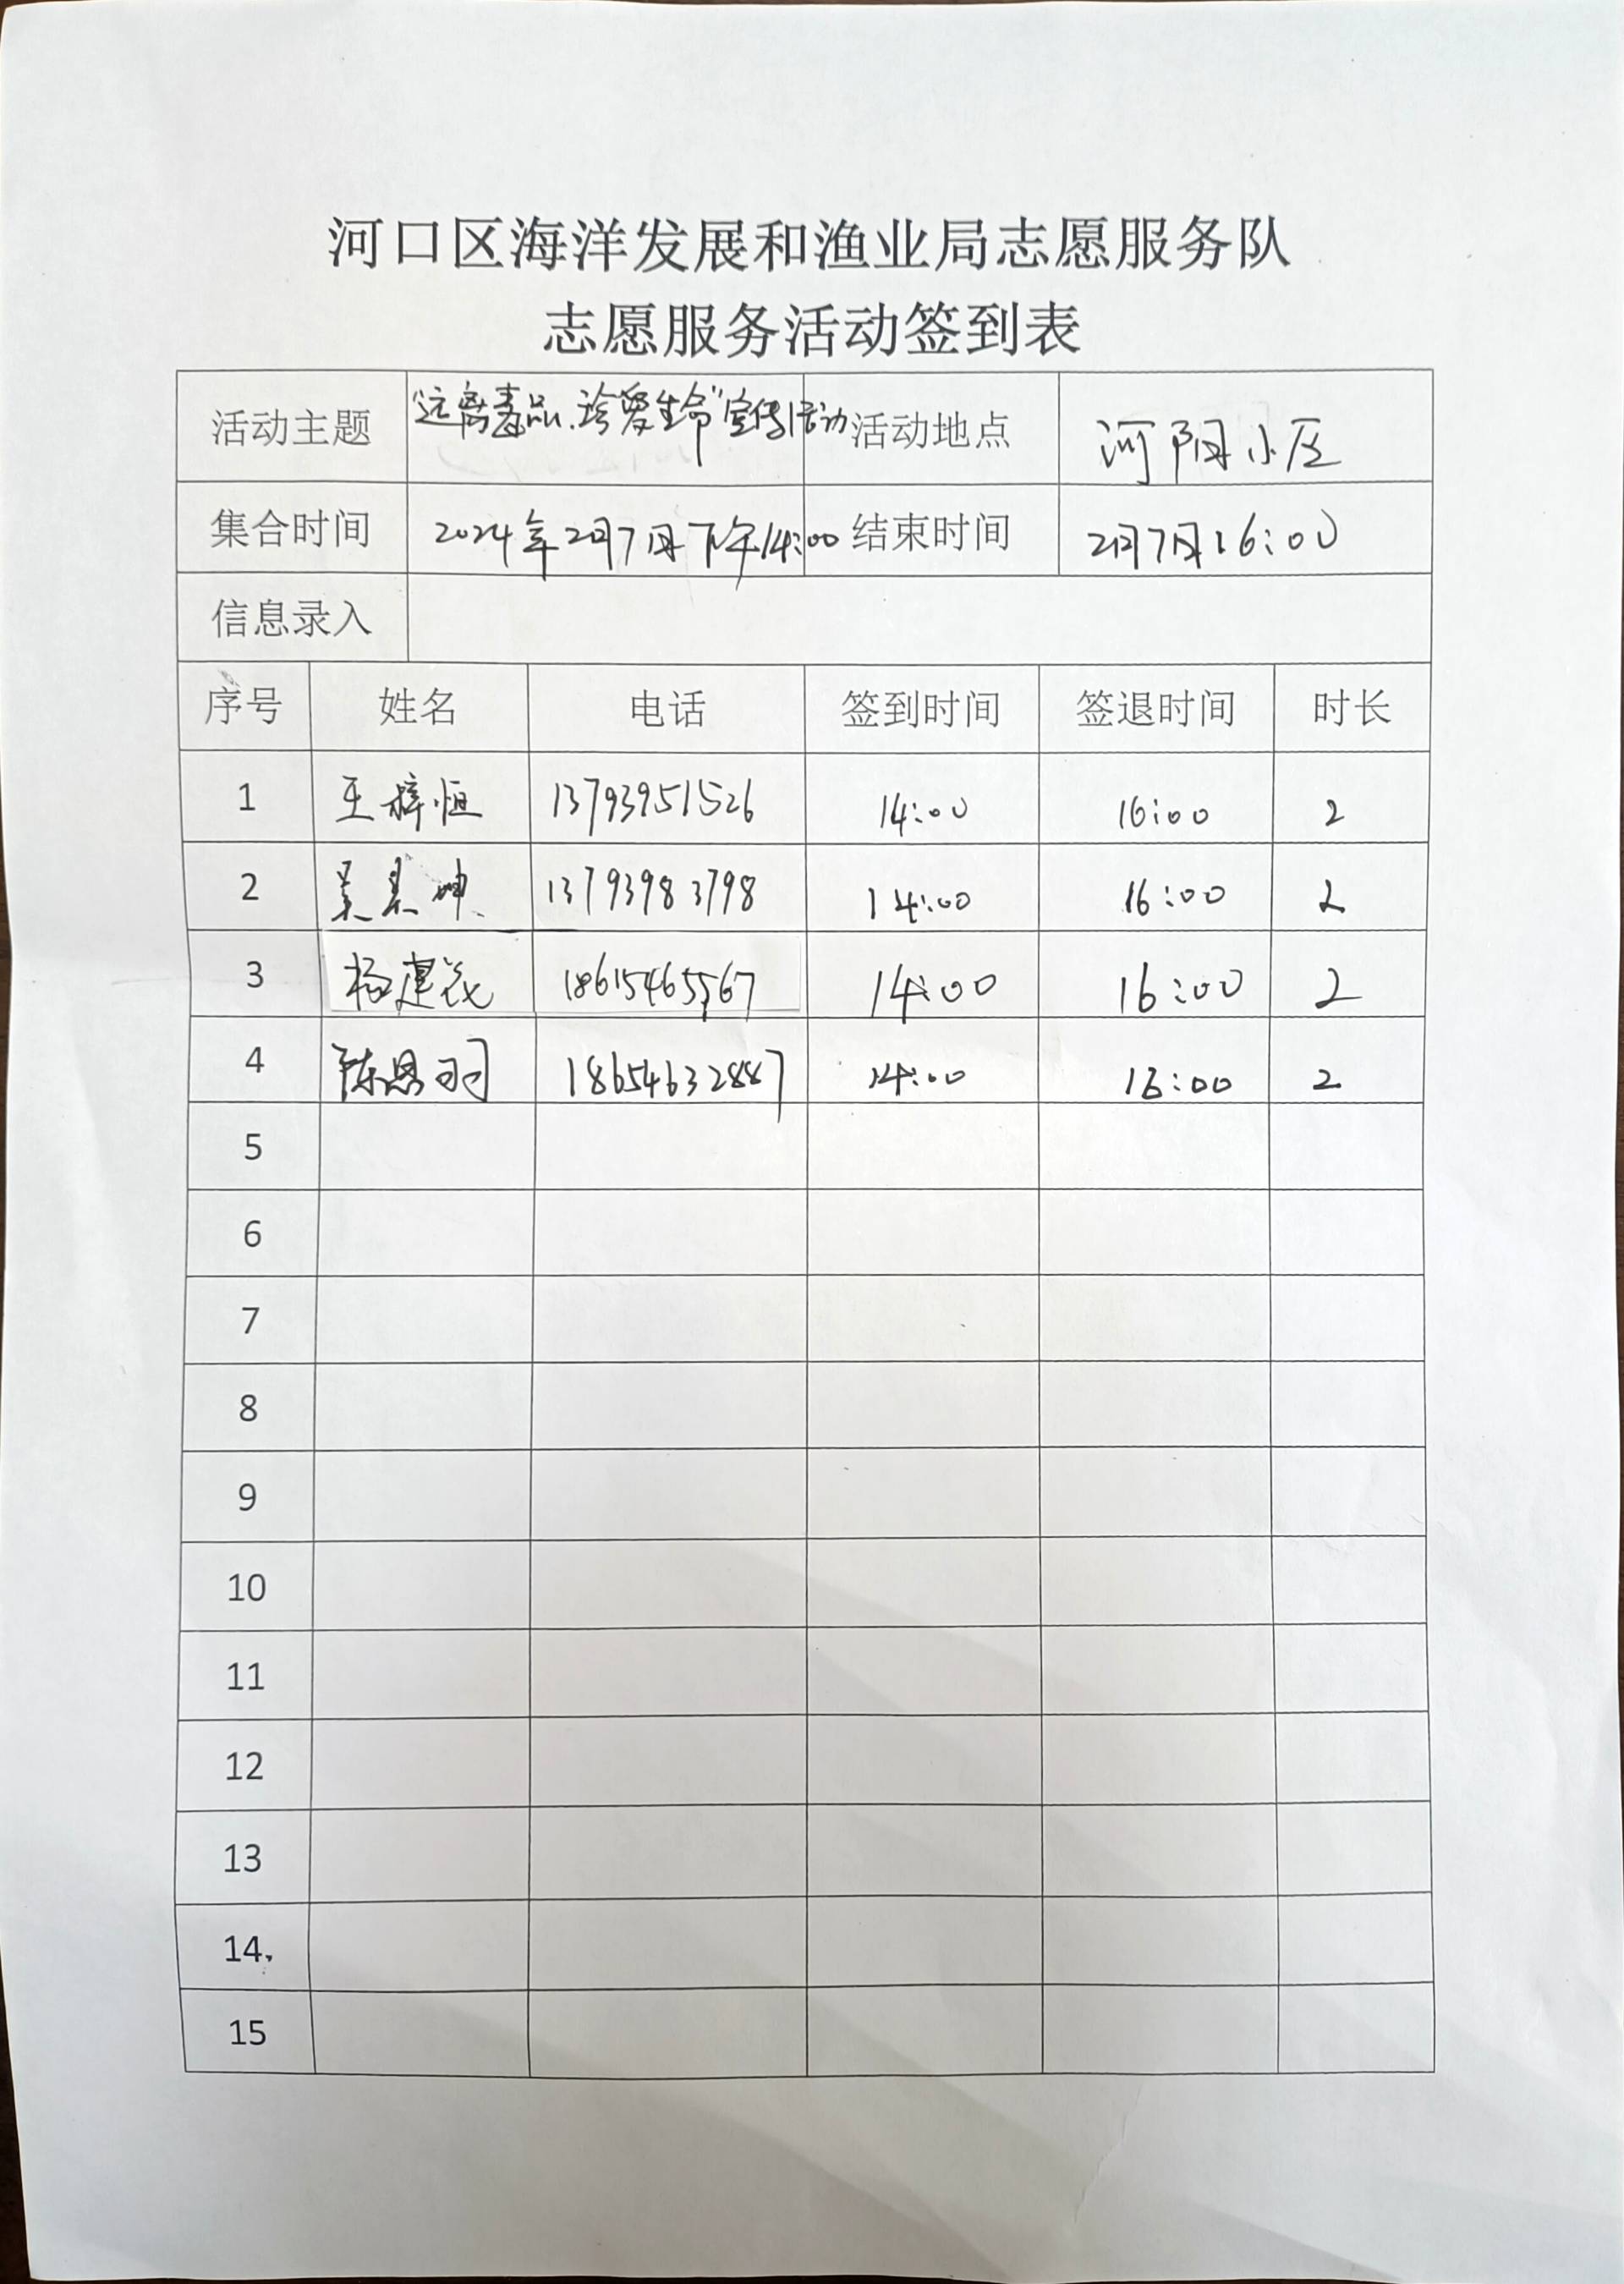 河口区海洋发展和渔业局志愿服务队
志愿服务活动签到表
活动主题 "远离毒品、珍爱生命"宣传活动 活动地点 河阳小区
集合时间 2024年2月7日下午14:00 结束时间 2月7日16:00
信息录入
序号 姓名 电话 签到时间 签退时间 时长
1 王梓恒 13793951526 14:00 16:00 2
2 吴 坤 13793983798 14:00 16:00 2
3 杨建 18615465567 14:00 16:00 2
4 陈恩羽 18654632887 14:00 16:00 2
5
6
7
8
9
10
11
12
13
14
15